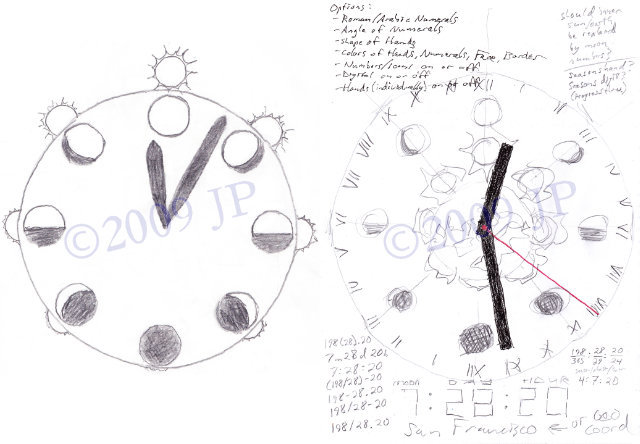 ©2009 JP
Options:
-Roman/Arabic Numerals
-Angle of Numerals
-Shape of Hands
-Colors of Hands, Numerals, Face, Border
-Numbers/Icons on or off
-Digital on or off
-Hands (individually) on or off
should inner
sun/earth
be replaced
by moon
numbers?
Seasons hand?
Seasons digits?
XII
I
IX
VIII
VII
VI
V
©2009 JP
198(28).20
7:28:20
(198/28)-20
198-28.20
198/28-20
198/28.20
XII
IX
X
XI
198.28.20
4:7:20
moon DAY HOUR
7:28:20
San Francisco ← or GEO
Coord